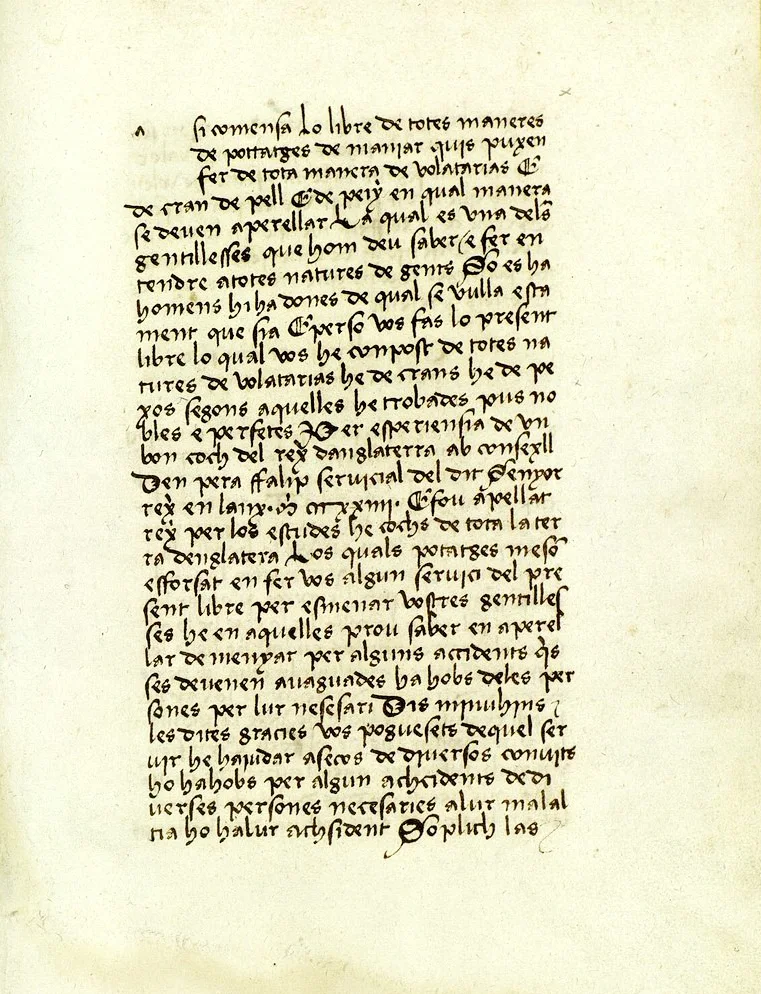 a si comensa Lo libre de totes maneres
de pottatges de maniar quis puxen
fer de tota manera de volatarias E
de cran de pell E de peix en qual manera
se deven aperellar La qual es vna dels
gentillesses que hom deu saber / e fer en
tendre atotes natures de gents So es ha
homens hi ha dones de qual se vulla esta
ment que sia E perso vos fas lo present
libre lo qual vos he conpost de totes na
tures de volatarias he de crans he de pe
xos segons aquelles he trobades pus no
bles e perfetes Per esperiensia de vn
bon coch del rey danglaterra ab consexll
Den pera ffalip servicial del dit Senyor
rey en lany. M ccc xxiiii. E fou apellat
rey per los escudes he cochs de tota la ter
ra denglatera Los quals potatges me so
efforsat en fer vos algun servici del pre
sent libre per esmenar vostres gentilles
ses he en aquelles prou saber en aperel
lar de menyar per alguns accidents qs
ses devenen avaguades ha hobs deles per
sones per lur nesesari Dis minuhins
les dites gracies vos poguesets dequel ser
vir he haiudar asecos de diversos convits
ho hahobs per algun achcidents de di
verses persones necesaries alur malal
tia ho halur achsident Soplich las